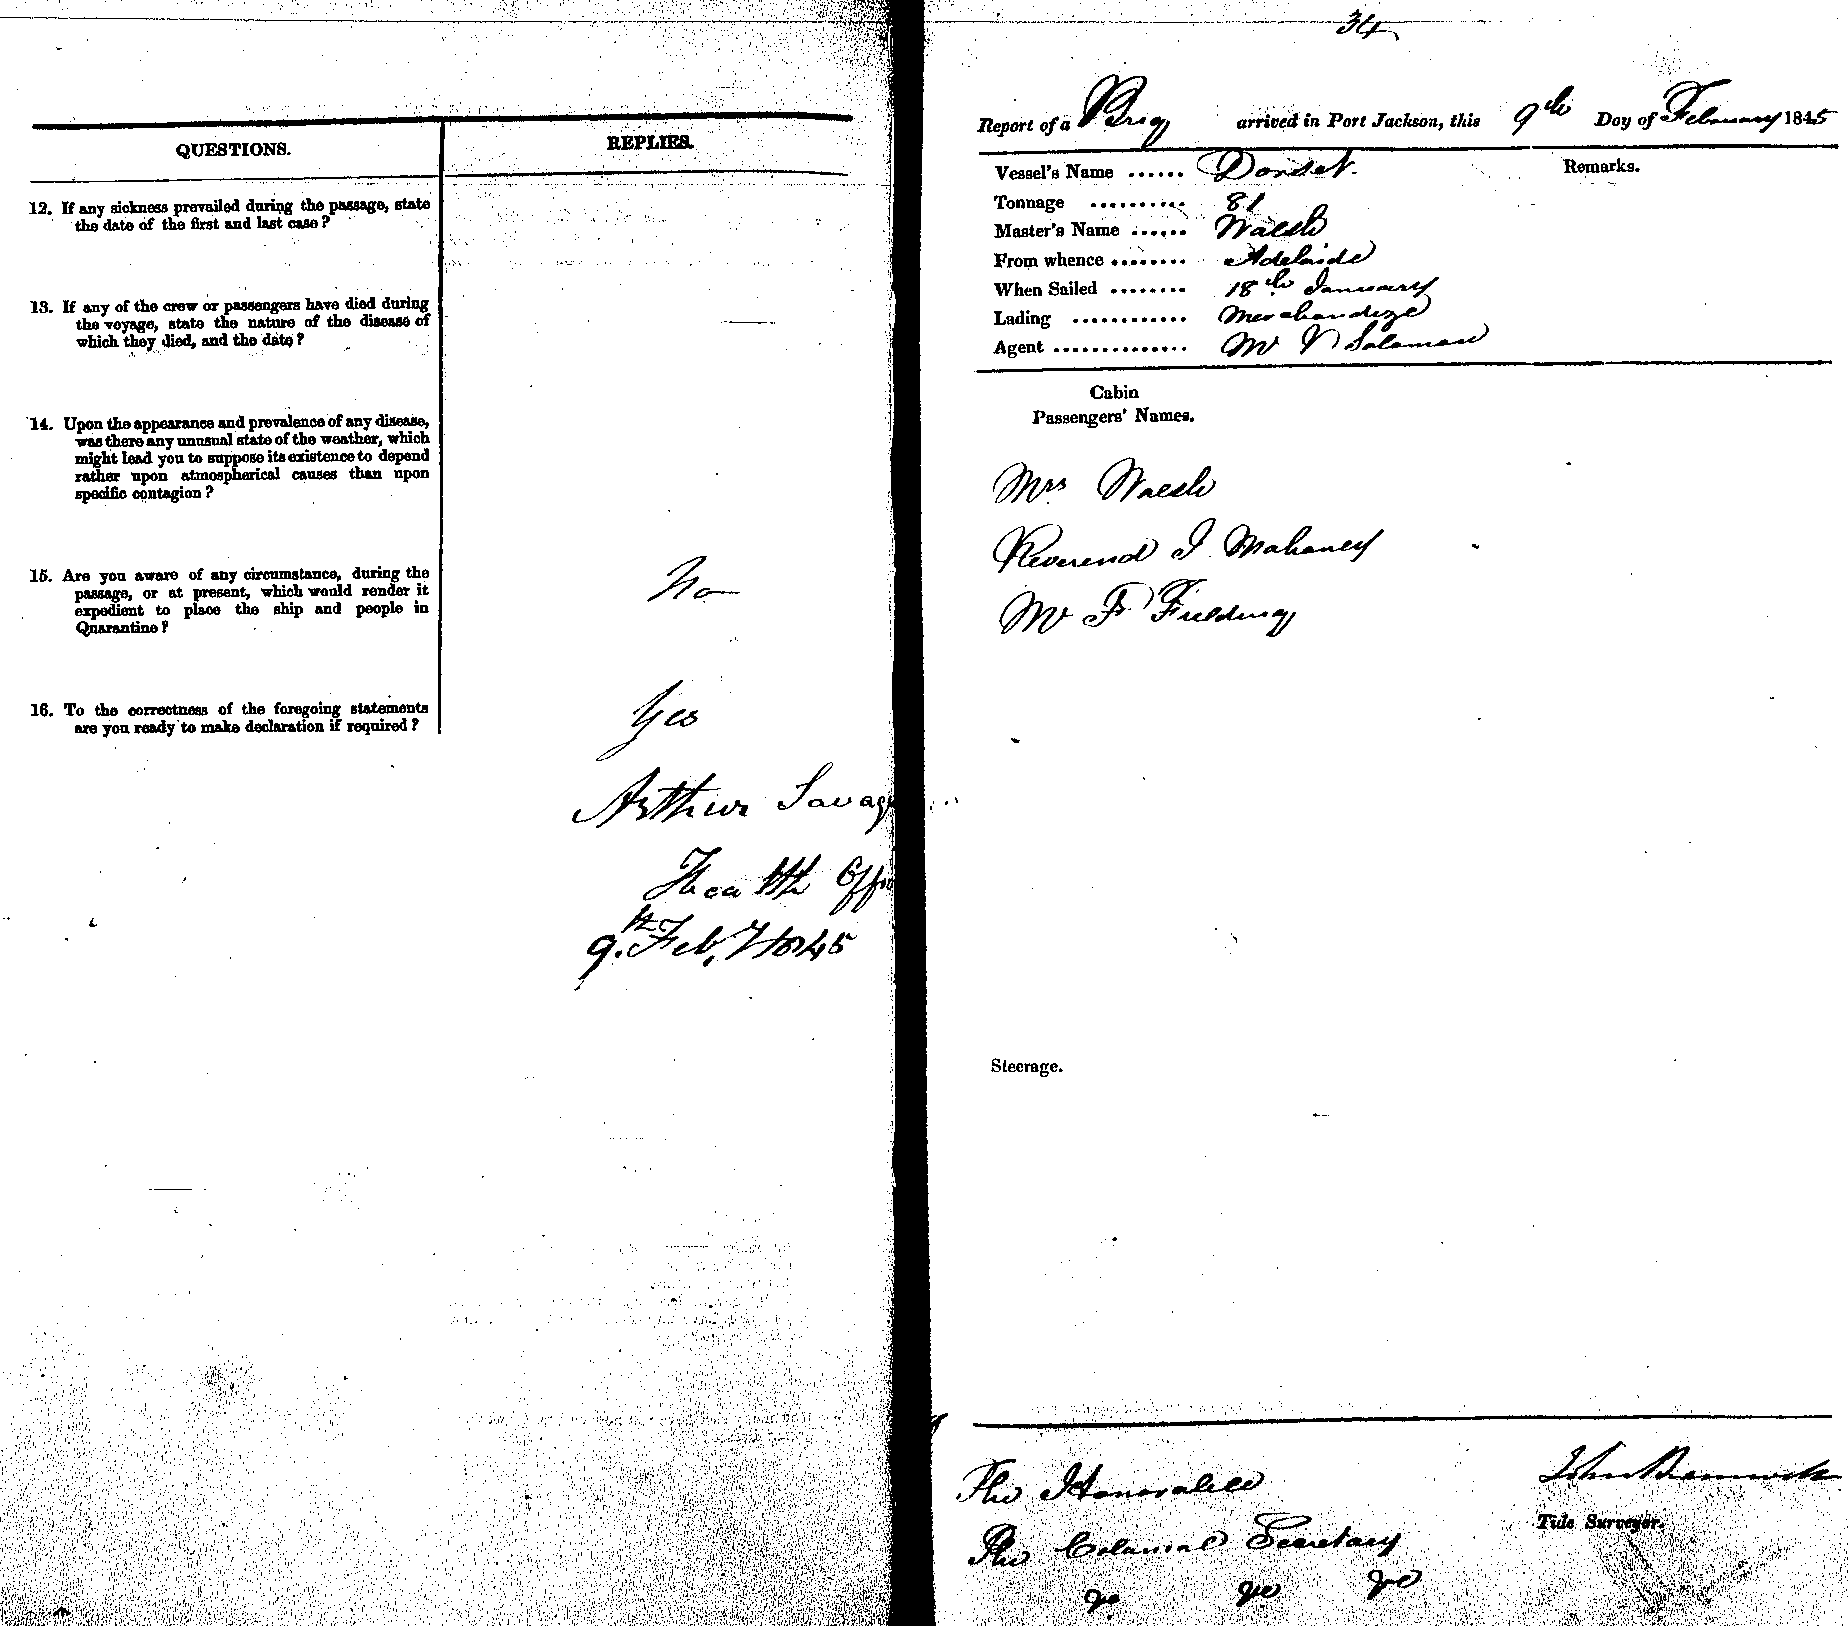 QUESTIONS.
REPLIES.
12. If any sickness prevailed during the passage, state
the date of the first and last case?
13. If any of the crew or passengers have died during
the voyage, state the nature of the disease of
which they died, and the date?
14. Upon the appearance and prevalence of any disease,
was there any unusual state of the weather, which
might lead you to suppose its existence to depend
rather upon atmospherical causes than upon
specific contagion?
15. Are you aware of any circumstance, during the
passage, or at present, which would render it
expedient to place the ship and people in
Quarantine?
No
16. To the correctness of the foregoing statements
are you ready to make declaration if required?
Yes
Arthur Savag
Health Offi
9.th Feby 1845
34
Report of a Brig arrived in Port Jackson, this 9th Day of February 1845
Vessel's Name ...... Dorset.
Remarks.
Tonnage .......... 81
Master's Name ...... Walsh
From whence ........ Adelaide
When Sailed ........ 18th January
Lading ............ Merchandize
Agent .............. Mr Salaman
Cabin
Passengers' Names.
Mrs Walsh
Reverend J. Mahaney
Mr F Fielding
Steerage.
The Honorable
The Colonial Secretary
John
Tide Surveyor.